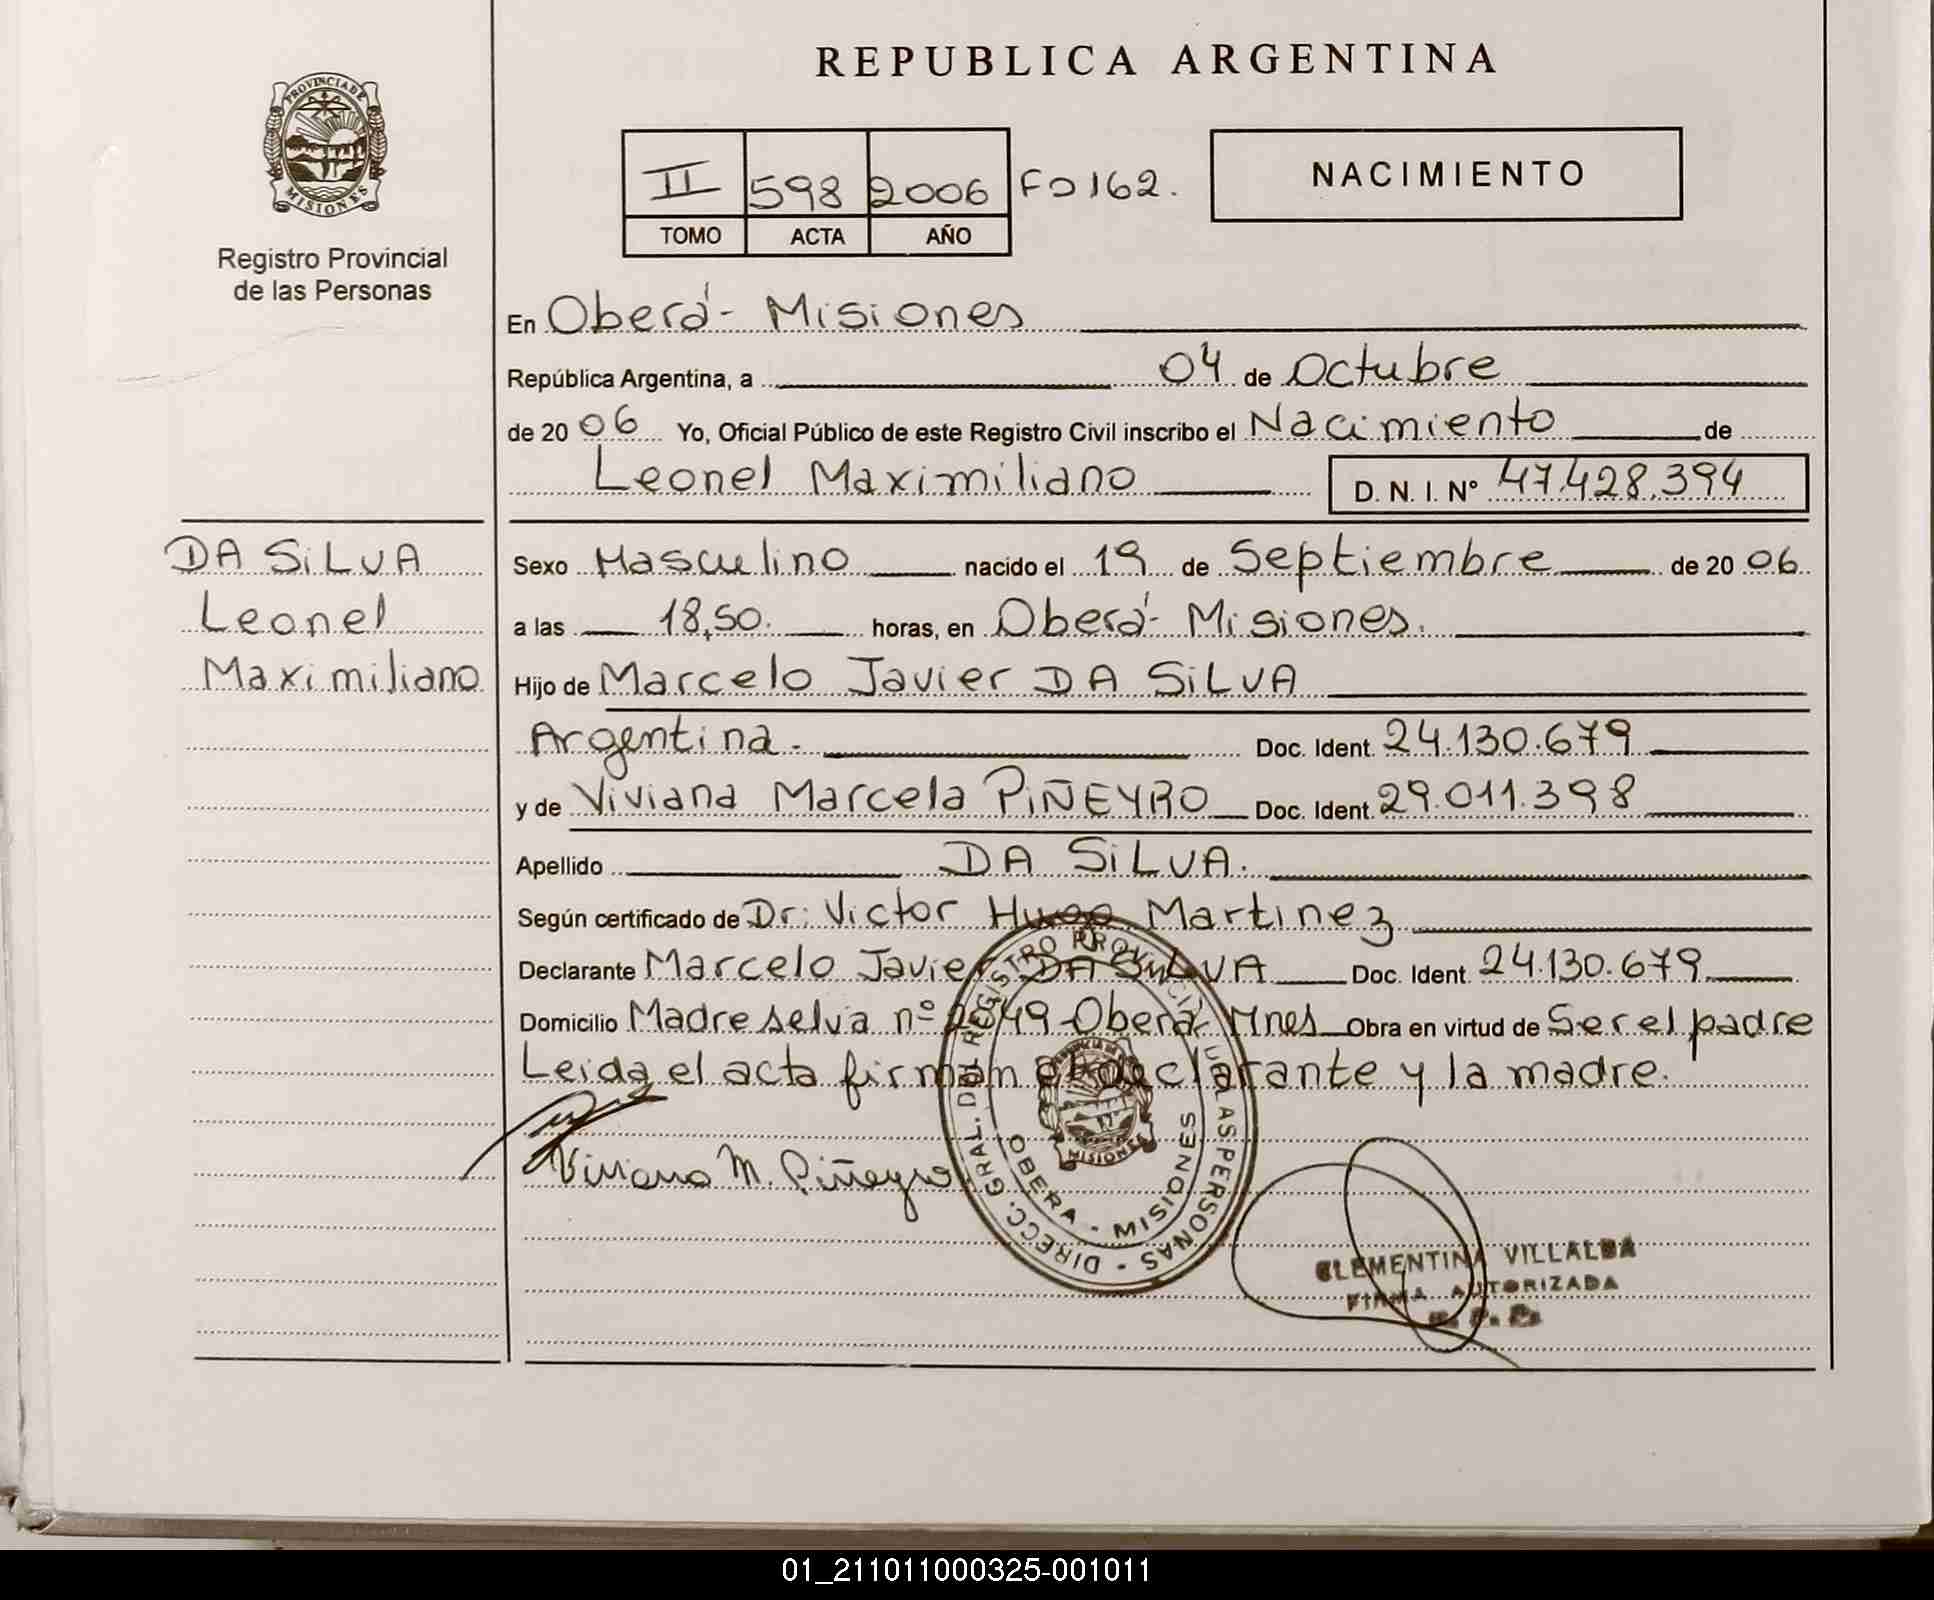 REPUBLICA ARGENTINA
PROVINCIA DE
MISIONES
Registro Provincial
de las Personas
II 598 2006 Fo 162.
TOMO ACTA AÑO
NACIMIENTO
En Oberá - Misiones
República Argentina, a 04 de Octubre
de 2006 Yo, Oficial Público de este Registro Civil inscribo el Nacimiento de
Leonel Maximiliano D. N. I. Nº 47.428.394
DA SiLVA
Leonel
Maximiliano
Sexo Masculino nacido el 19 de Septiembre de 2006
a las 18,50. horas, en Oberá - Misiones.
Hijo de Marcelo Javier DA SiLVA
Argentina. Doc. Ident. 24.130.679
y de Viviana Marcela PiÑEYRO Doc. Ident. 29.011.398
Apellido DA SiLVA.
Según certificado de Dr: Victor Hugo Martinez
Declarante Marcelo Javier DA SiLVA Doc. Ident. 24.130.679
Domicilio Madreselva nº 2849 - Oberá - Mnes Obra en virtud de Ser el padre
Leida el acta firman el declarante y la madre.
Viviana M. Piñeyro
DIRECC. GRAL. DEL REGISTRO PROVINCIAL DE LAS PERSONAS
OBERA - MISIONES
MISIONES
CLEMENTINA VILLALBA
FIRMA AUTORIZADA
01_211011000325-001011